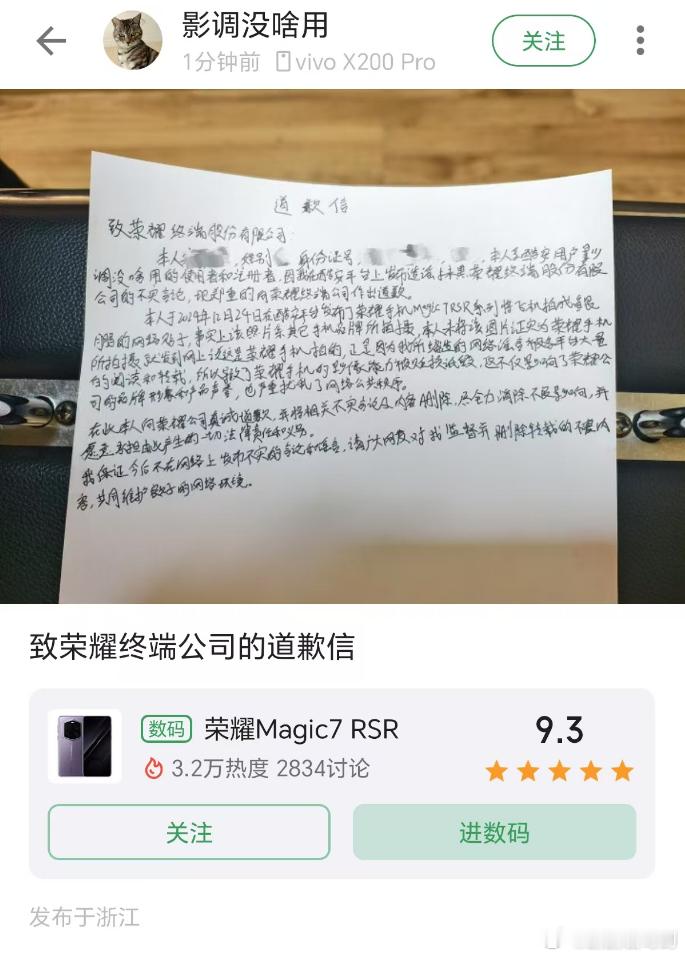 影调没啥用
1分钟前 vivo X200 Pro
关注
道歉信
致荣耀终端股份有限公司:
本人 性别 身份证号 , 本人系酷安用户影
调没啥用的使用者和注册者,因我在酷安平台上发布造谣抹黑荣耀终端股份有限
公司的不实言论,现郑重的向荣耀终端公司作出道歉。
本人于2024年12月24日在酷安平台发布了荣耀手机Magic7RSR系列将飞机拍成导
弹的网络帖子,事实上该照片系其它手机品牌所拍摄,本人未将该图片证实为荣耀手机
所拍摄就发到网上说这是荣耀手机拍的,正是因为我所编造的网络谣言被各平台大量
的阅读和转载,所以导致了荣耀手机的影像能力被贬损诋毁,这不仅影响了荣耀公
司的品牌形象和产品声誉,也严重扰乱了网络公共秩序。
在此本人向荣耀公司真诚道歉,并将相关不实言论及内容删除,尽全力消除不良影响,并
愿意承担由此产生的一切法律责任和义务。
我保证今后不在网络上发布不实的言论和谣言,请广大网友对我监督并删除转载的不实内
容,共同维护良好的网络环境。
致荣耀终端公司的道歉信
数码 荣耀Magic7 RSR
9.3
3.2万热度 2834讨论
关注
进数码
发布于浙江